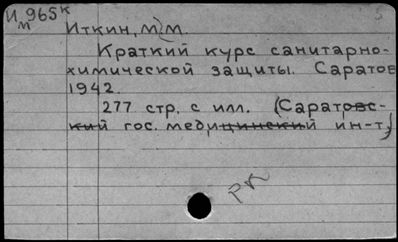 И 965 к
м
Иткин, М. М.
Краткий курс санитарно-
химической защиты. Саратов
1942.
277 стр. с илл. (Саратовс-
кий гос. медицинский ин-т)
РК